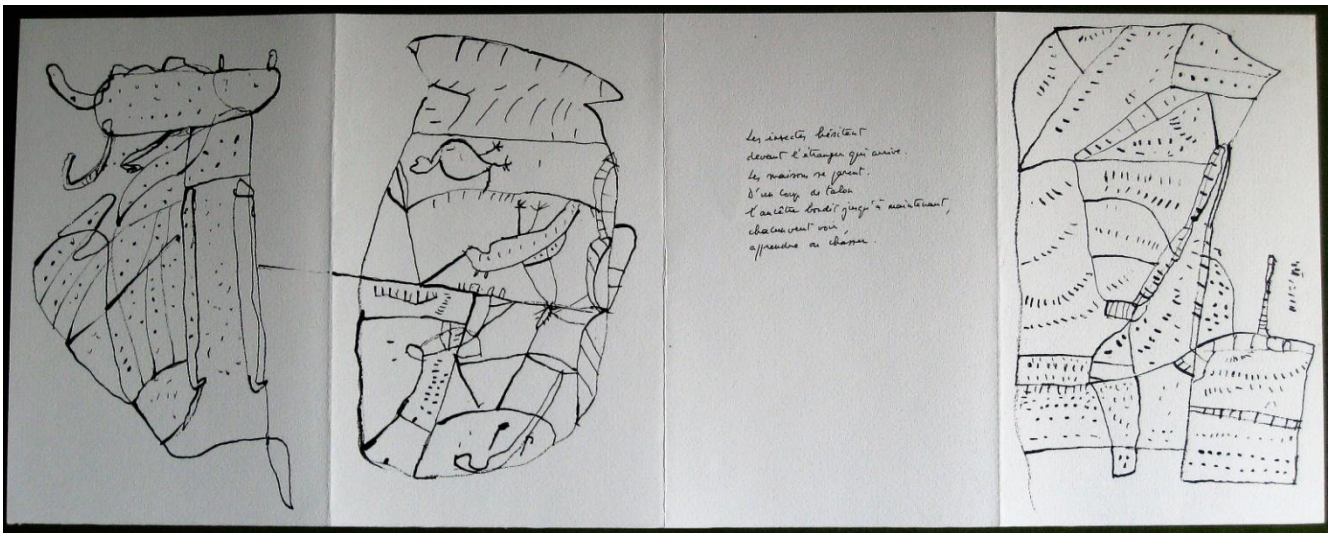 Les insectes hésitent
devant l'étranger qui arrive.
Les maisons se parent.
D'un coup de talon
l'ancêtre bondit jusqu'à maintenant,
chacun veut voir,
apprendre ou chasser.